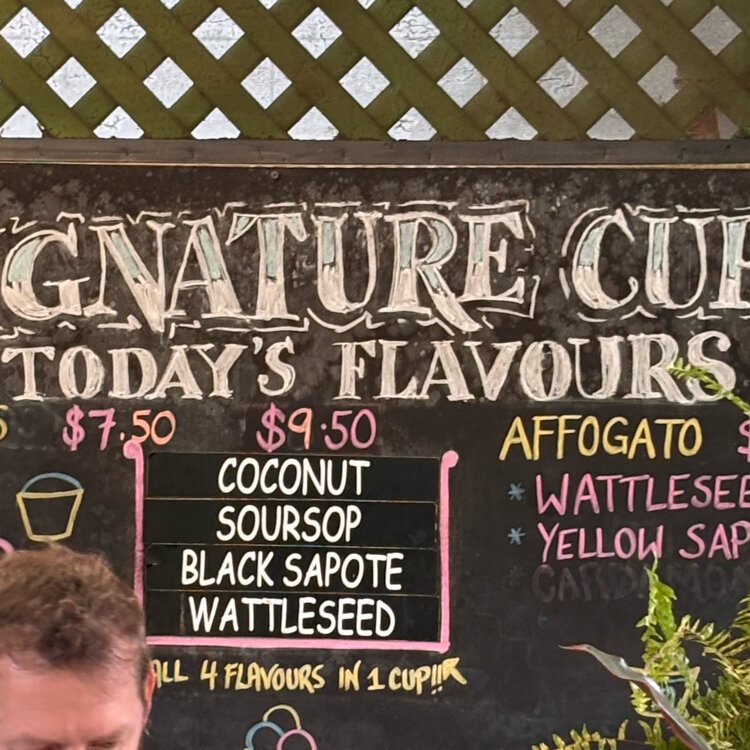 IGNATURE CUP
TODAY'S FLAVOURS
$7.50 $9.50
AFFOGATO $
COCONUT
SOURSOP
BLACK SAPOTE
WATTLESEED
* WATTLESEE
* YELLOW SAP
ALL 4 FLAVOURS IN 1 CUP!!